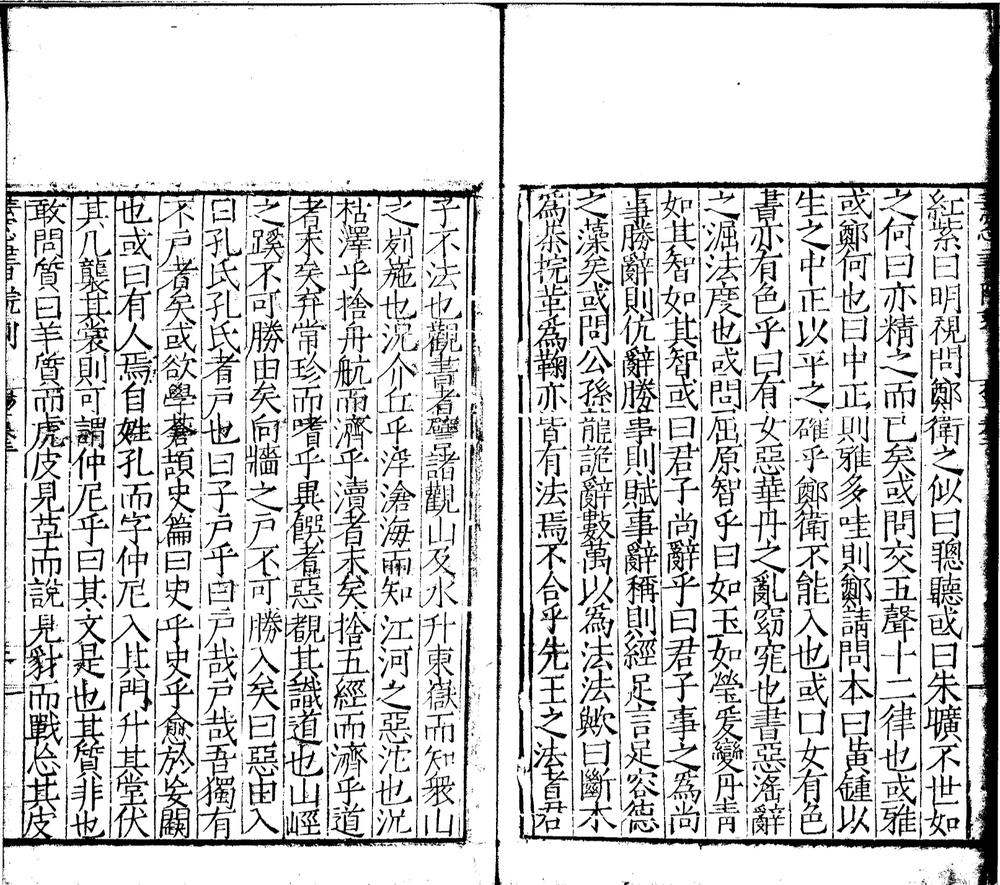 紅紫曰明視問鄭衛之似曰聰聽或曰朱曠不世如
之何曰亦精之而已矣或問交五聲十二律也或雅
或鄭何也曰中正則雅多哇則鄭請問本曰黃鍾以
生之中正以平之確乎鄭衛不能入也或曰女有色
書亦有色乎曰有女惡華丹之亂窈窕也書惡淫辭
之淈法度也或問屈原智乎曰如玉如瑩爰變丹青
如其智如其智或曰君子尚辭乎曰君子事之為尚
事勝辭則伉辭勝事則賦事辭稱則經足言足容德
之藻矣或問公孫龍詭辭數萬以為法法歟曰斷木
為棊捖革為鞠亦皆有法焉不合乎先王之法者君
子不法也觀書者譬諸觀山及水升東嶽而知衆山
之峛崺也況介丘乎浮滄海而知江河之惡沱也況
枯澤乎捨舟航而濟乎瀆者末矣捨五經而濟乎道
者末矣弃常珍而嗜乎異饌者惡覩其識道也山嶝
之蹊不可勝由矣向牆之戶不可勝入矣曰惡由入
曰孔氏孔氏者戶也曰子戶乎曰戶哉戶哉吾獨有
不戶者矣或欲學蒼頡史篇曰史乎史乎愈於妄闕
也或曰有人焉自姓孔而字仲尼入其門升其堂伏
其几襲其裳則可謂仲尼乎曰其文是也其質非也
敢問質曰羊質而虎皮見草而說見豺而戰忘其皮